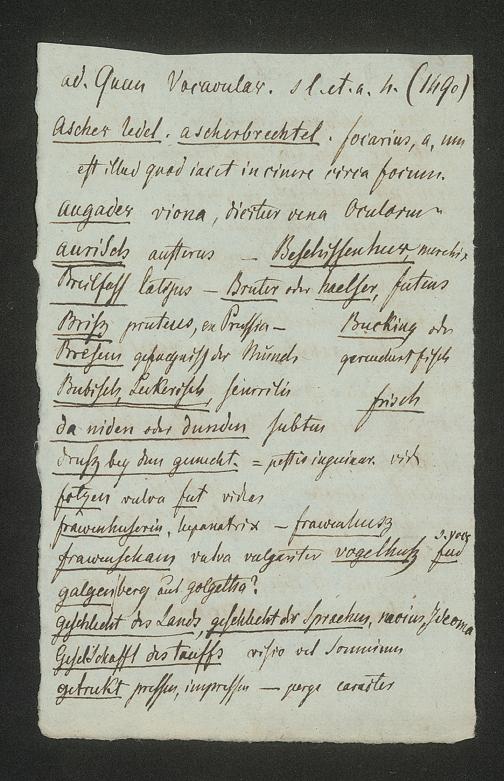 ad. Quen Vocavular. s l. et. a. h. (1490)
Ascher zedel. ascherbrechtel. focarius, a, um
est illud quod iacet in cinere circa focum.
augader viona, dicitur vena Oculorum
aurisch austerus — Beschissenhur
Breilfass — Bruter oder haelser, futens
Brisz prutenus, en Prussia — Bucking oder
Bresem gefengniss der Munds gereucherfisch
Bubisch, Leckerisch, scurrilis frisch
da niden oder dunden subtus
drusz bey den gemecht. = pestis inguinar. vid
fotzen vulva fut vides
frawenhuserin, lupanatrix — frawenhusz
frawenscham vulva vulgariter vogelhusz fud
galgenberg aut golgatha?
geschlecht des Lands, geschlecht der Sprachen, Ideoma
Geselschafft des tauffs visio vel Somnium
getrukt pressus, impressus — caracter